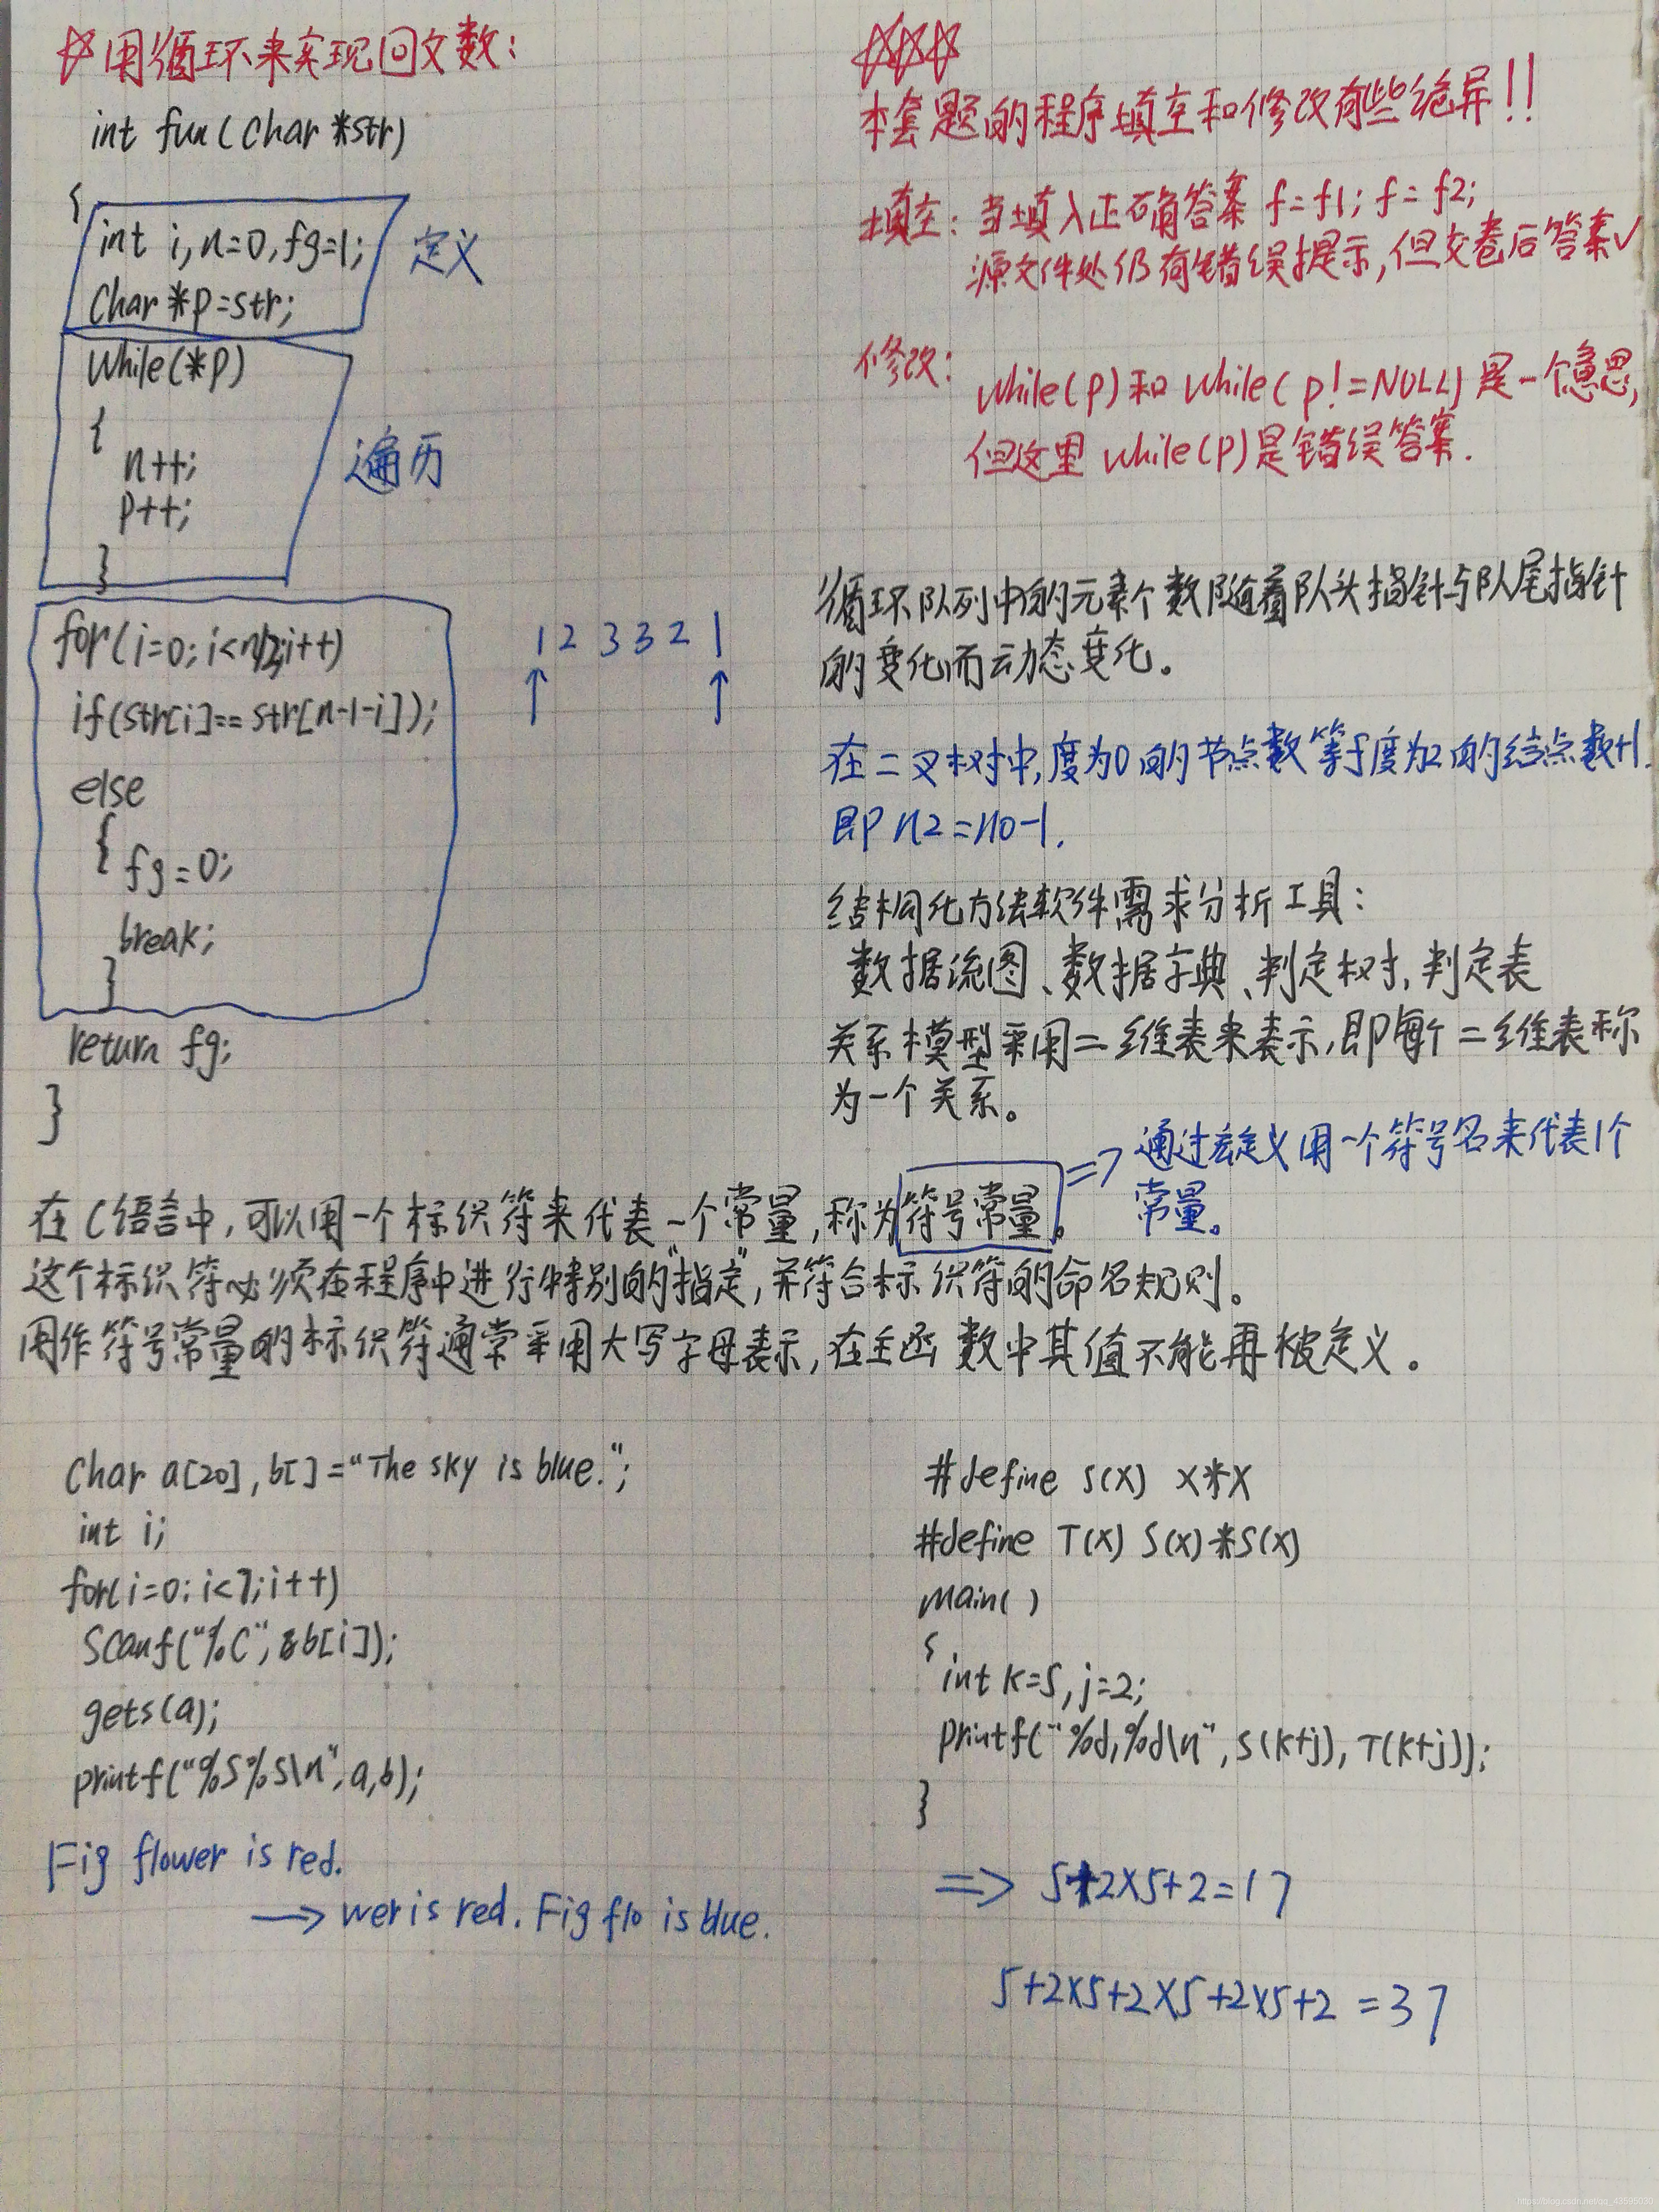 ☆用循环来实现回文数:
int fun(char *str)
{
int i,n=0,fg=1;
char *p=str;
定义
while(*p)
{
n++;
p++;
}
遍历
for(i=0;i<n/2;i++)
if(str[i]==str[n-1-i]);
else
{ fg=0;
break;
}
return fg;
}
1 2 3 3 2 1
↑ ↑
☆☆☆
本套题的程序填空和修改有些诡异!!
填空: 当填入正确答案 f=f1; f=f2;
源文件处仍有错误提示,但交卷后答案√
修改: while(p)和 while(p!=NULL)是一个意思,
但这里 while(p)是错误答案.
循环队列中的元素个数随着队头指针与队尾指针
的变化而动态变化。
在二叉树中,度为0的节点数等于度为2的结点数+1.
即 n2=n0-1.
结构化方法软件需求分析工具:
数据流图、数据字典、判定树,判定表
关系模型采用二维表来表示,即每个二维表称
为一个关系。
在C语言中,可以用一个标识符来代表一个常量,称为符号常量。
=> 通过宏定义用一个符号名来代表1个
常量。
这个标识符必须在程序中进行特别的"指定",并符合标识符的命名规则。
用作符号常量的标识符通常采用大写字母表示,在主函数中其值不能再被定义。
char a[20],b[]="The sky is blue.";
int i;
for(i=0;i<7;i++)
scanf("%c",&b[i]);
gets(a);
printf("%s%s\n",a,b);
Fig flower is red.
→ wer is red. Fig flo is blue.
#define S(X) X*X
#define T(X) S(X)*S(X)
main()
{
int k=5,j=2;
printf("%d,%d\n",S(k+j),T(k+j));
}
=> 5+2×5+2=17
5+2×5+2×5+2×5+2=37
https://blog.csdn.net/qq_43595030